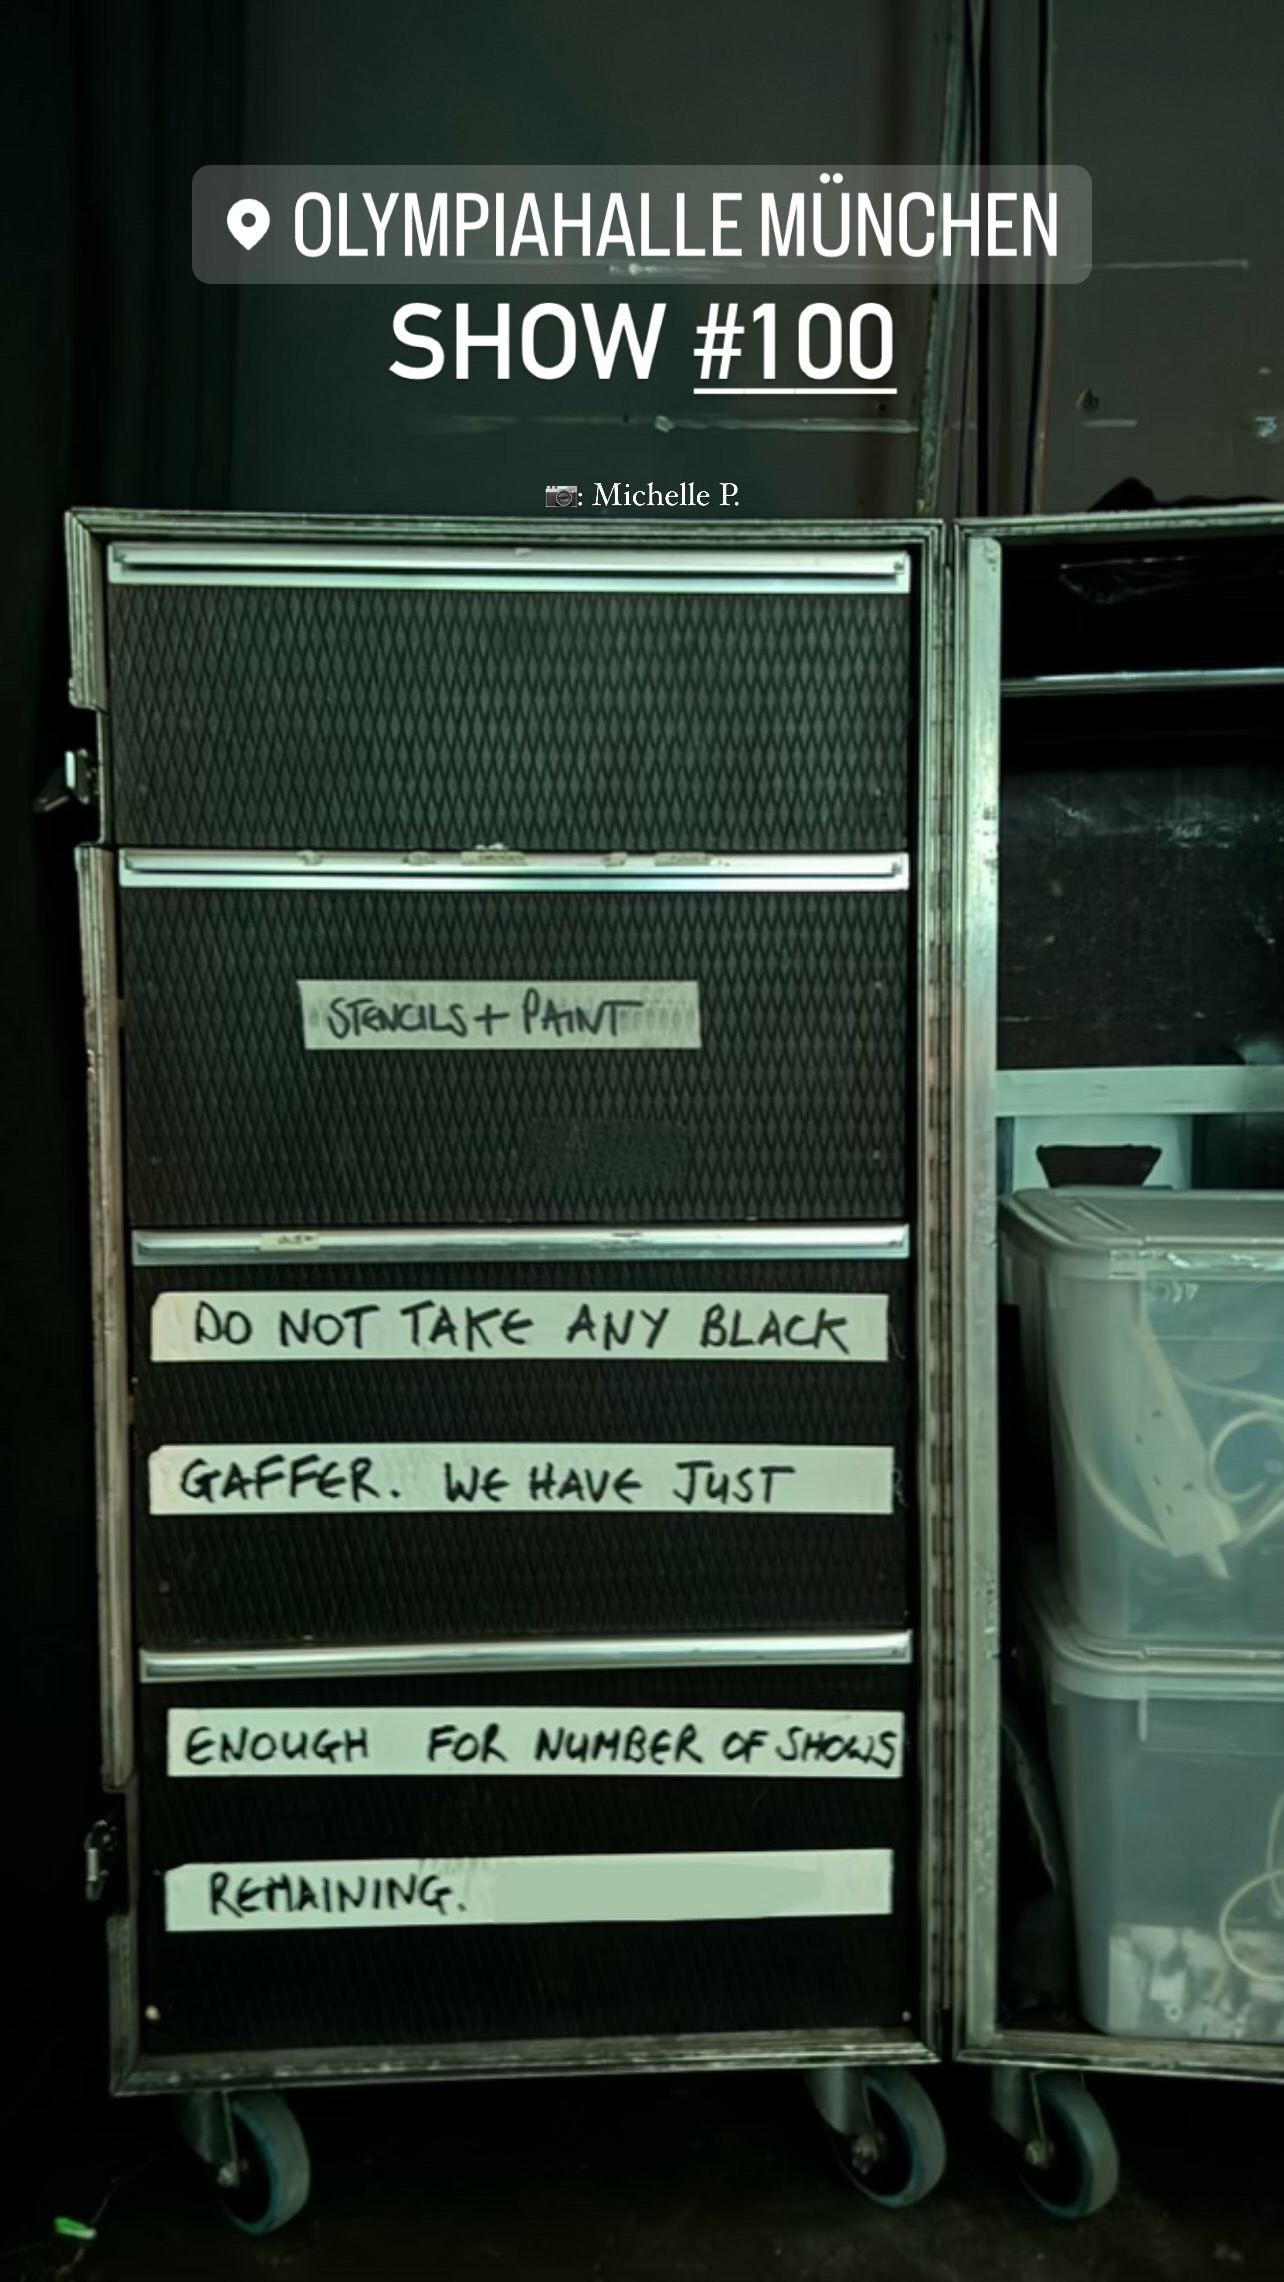 OLYMPIAHALLE MÜNCHEN
SHOW #100
: Michelle P.
STENCILS + PAINT
DO NOT TAKE ANY BLACK
GAFFER. WE HAVE JUST
ENOUGH FOR NUMBER OF SHOWS
REMAINING.